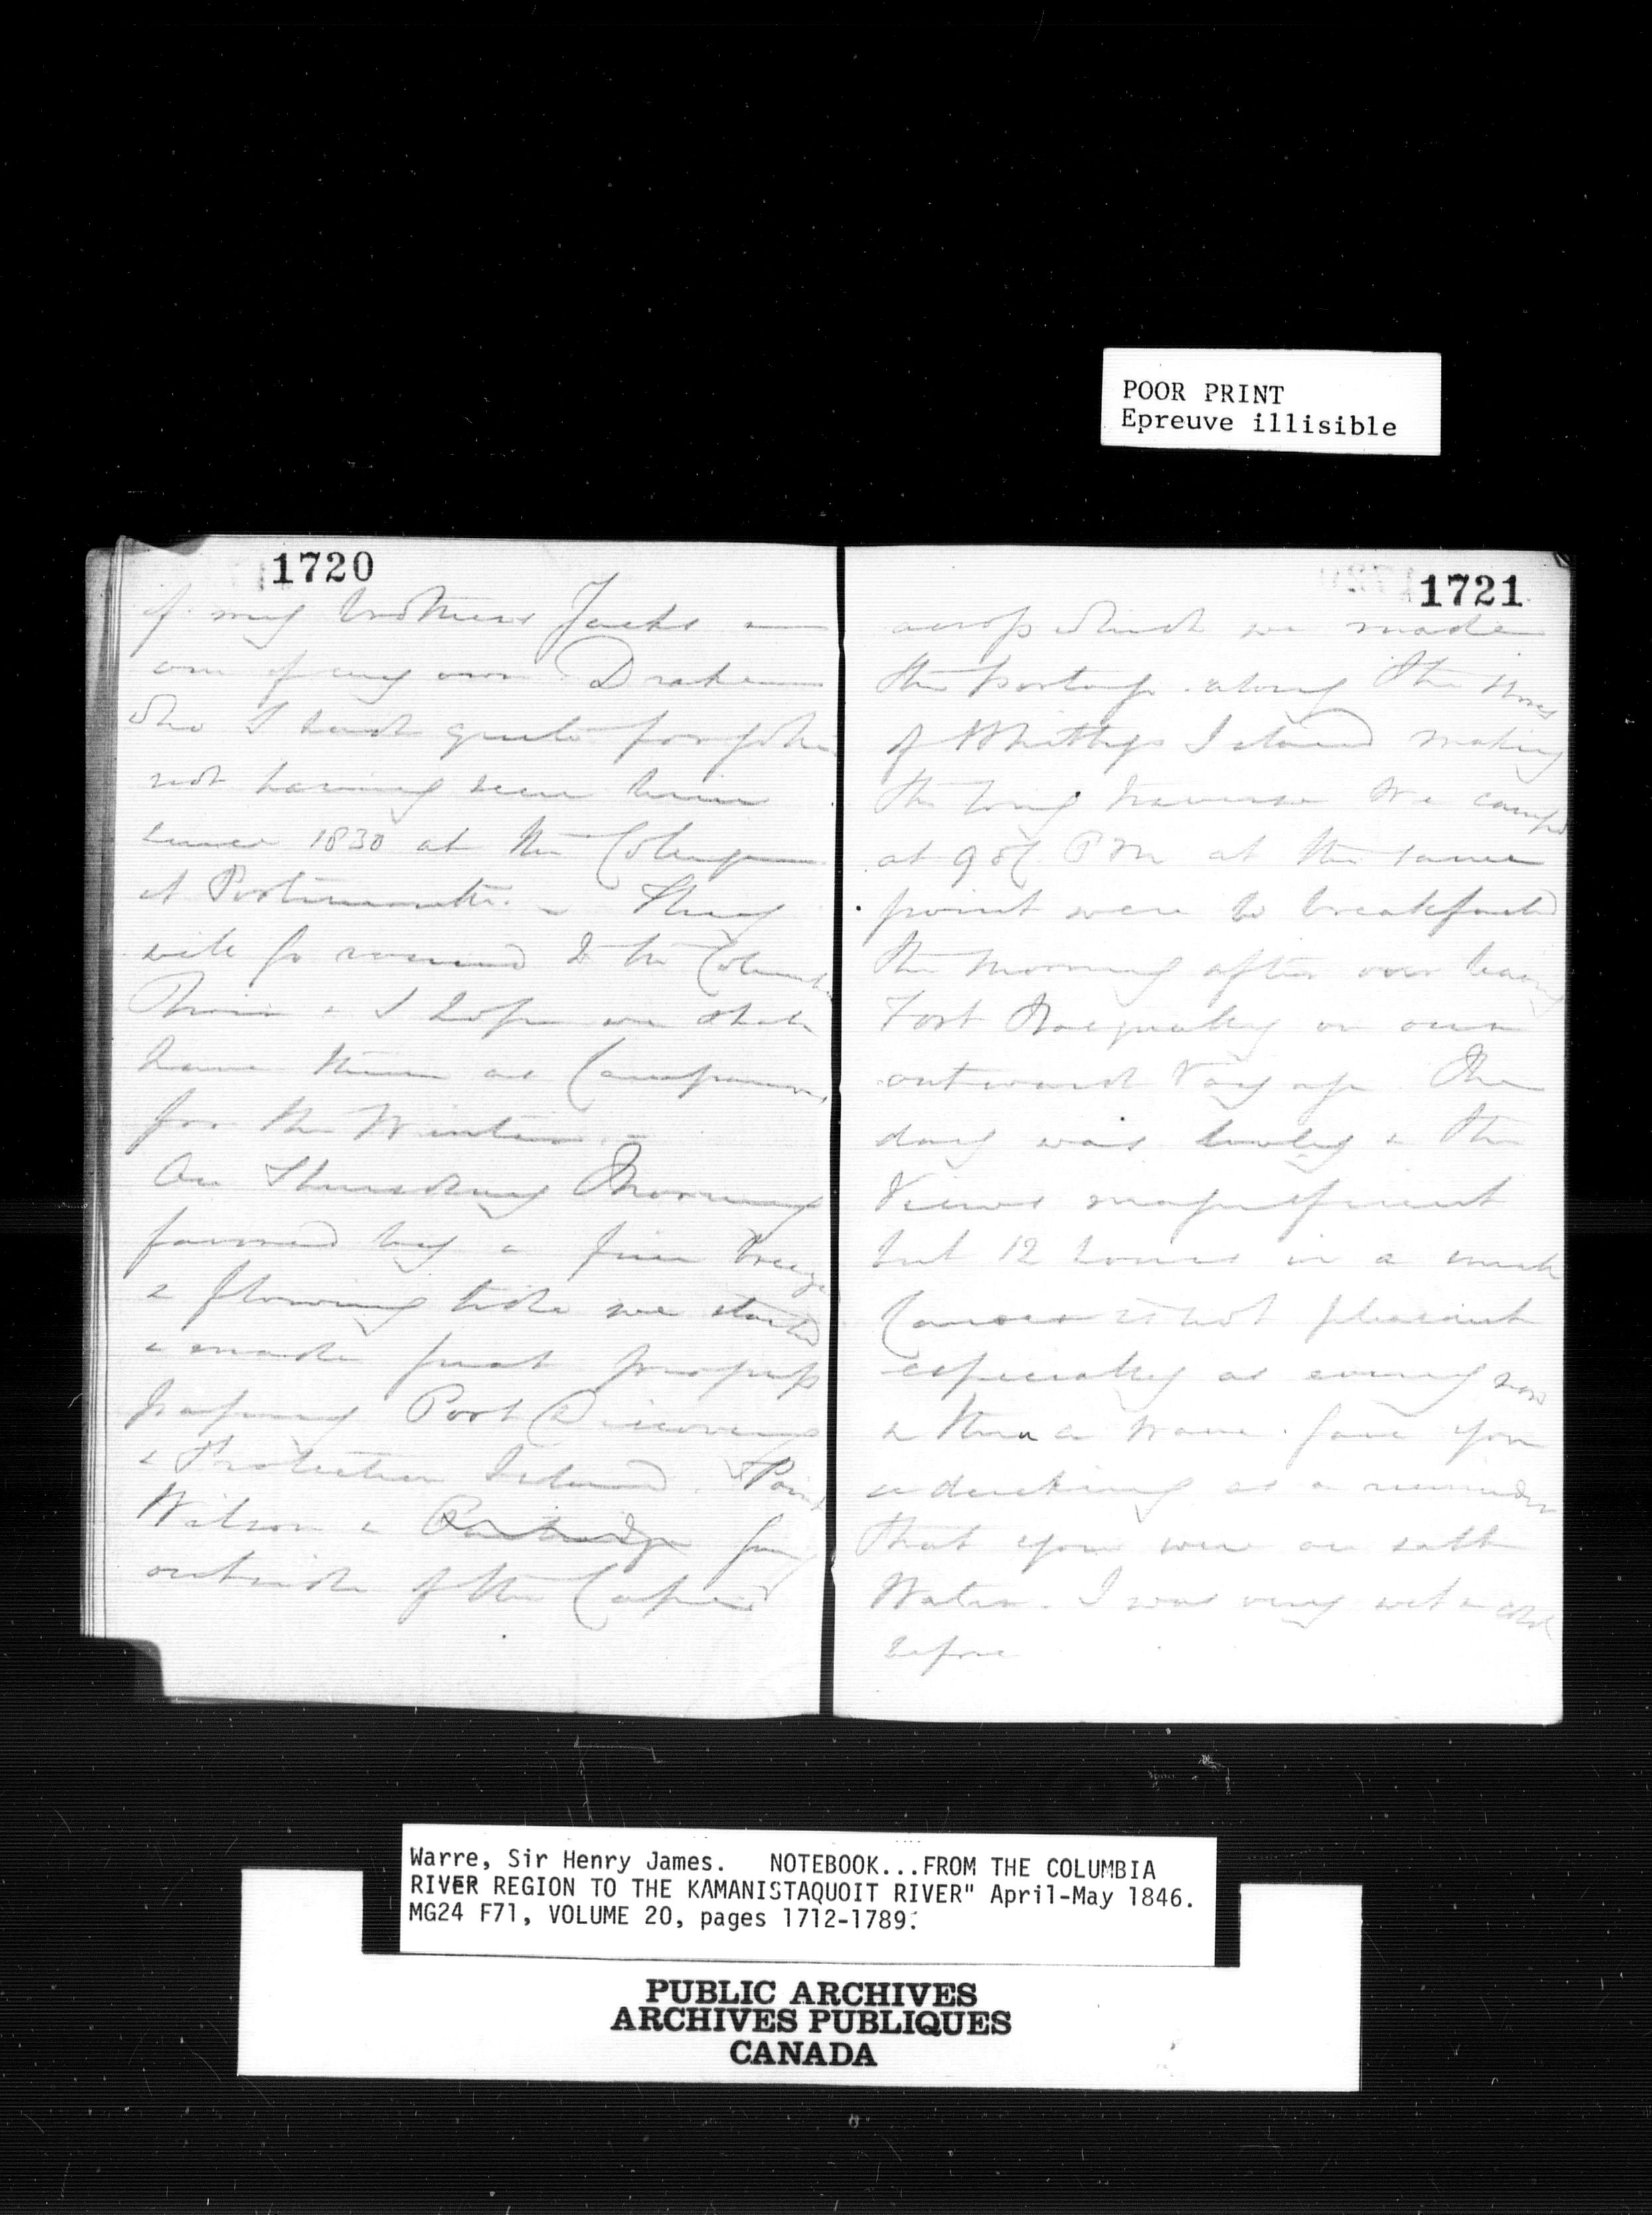 POOR PRINT
Epreuve illisible
1720
of my brothers Jacks
one of my own Drake
who I had quite forgotten
not having seen him
since 1830 at the College
at Portsmouth. They
will go round to the Columbia
River & I hope we shall
have them as Companions
for the Winter.
On Thursday Morning
favored by a fine breeze
& flowing tide we started
& made great progress
passing Port Discovery
& Protection Island. Point
Wilson & Partridge
outside of the
1721
across which we made
the portage along the shores
of Whitbys Island making
the long traverse We camped
at 9 oC P M at the same
point were we breakfasted
the morning after our leaving
Fort Nesqually on our
outward Voyage The
day was lovely & the
Views magnificent
but 12 hours in a small
Canoe is not pleasant
especially as every now
& then a wave gave you
a ducking as a reminder
that you were on salt
Water. I was very wet & cold
before
Warre, Sir Henry James. NOTEBOOK...FROM THE COLUMBIA
RIVER REGION TO THE KAMANISTAQUOIT RIVER" April-May 1846.
MG24 F71, VOLUME 20, pages 1712-1789.
PUBLIC ARCHIVES
ARCHIVES PUBLIQUES
CANADA